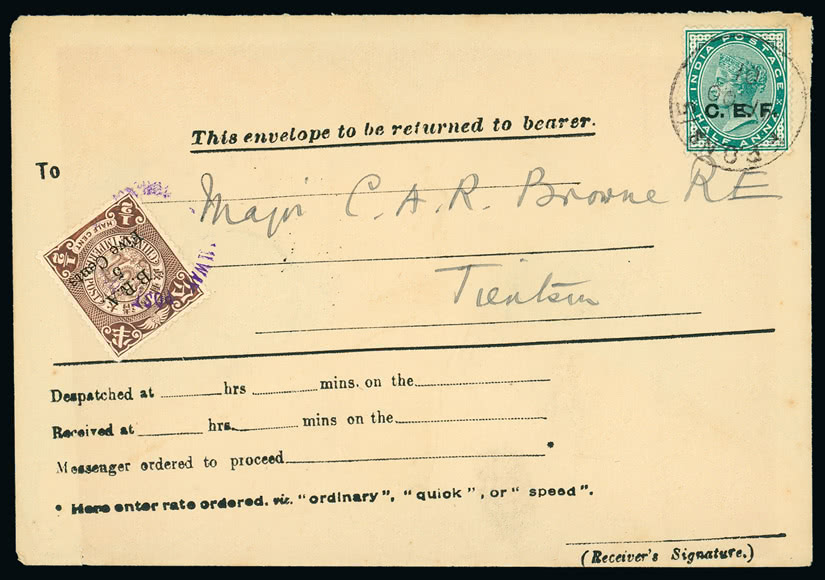 INDIA POSTAGE
C. E. F.
HALF ANNA
This envelope to be returned to bearer.
To
Major C. A. R. Browne RE
Tientsin
½ HALF CENT ½
B R A
5
Five Cents
Despatched at hrs mins. on the
Received at hrs. mins on the
Messenger ordered to proceed *
* Here enter rate ordered. viz. "ordinary", "quick", or "speed".
(Receiver's Signature.)